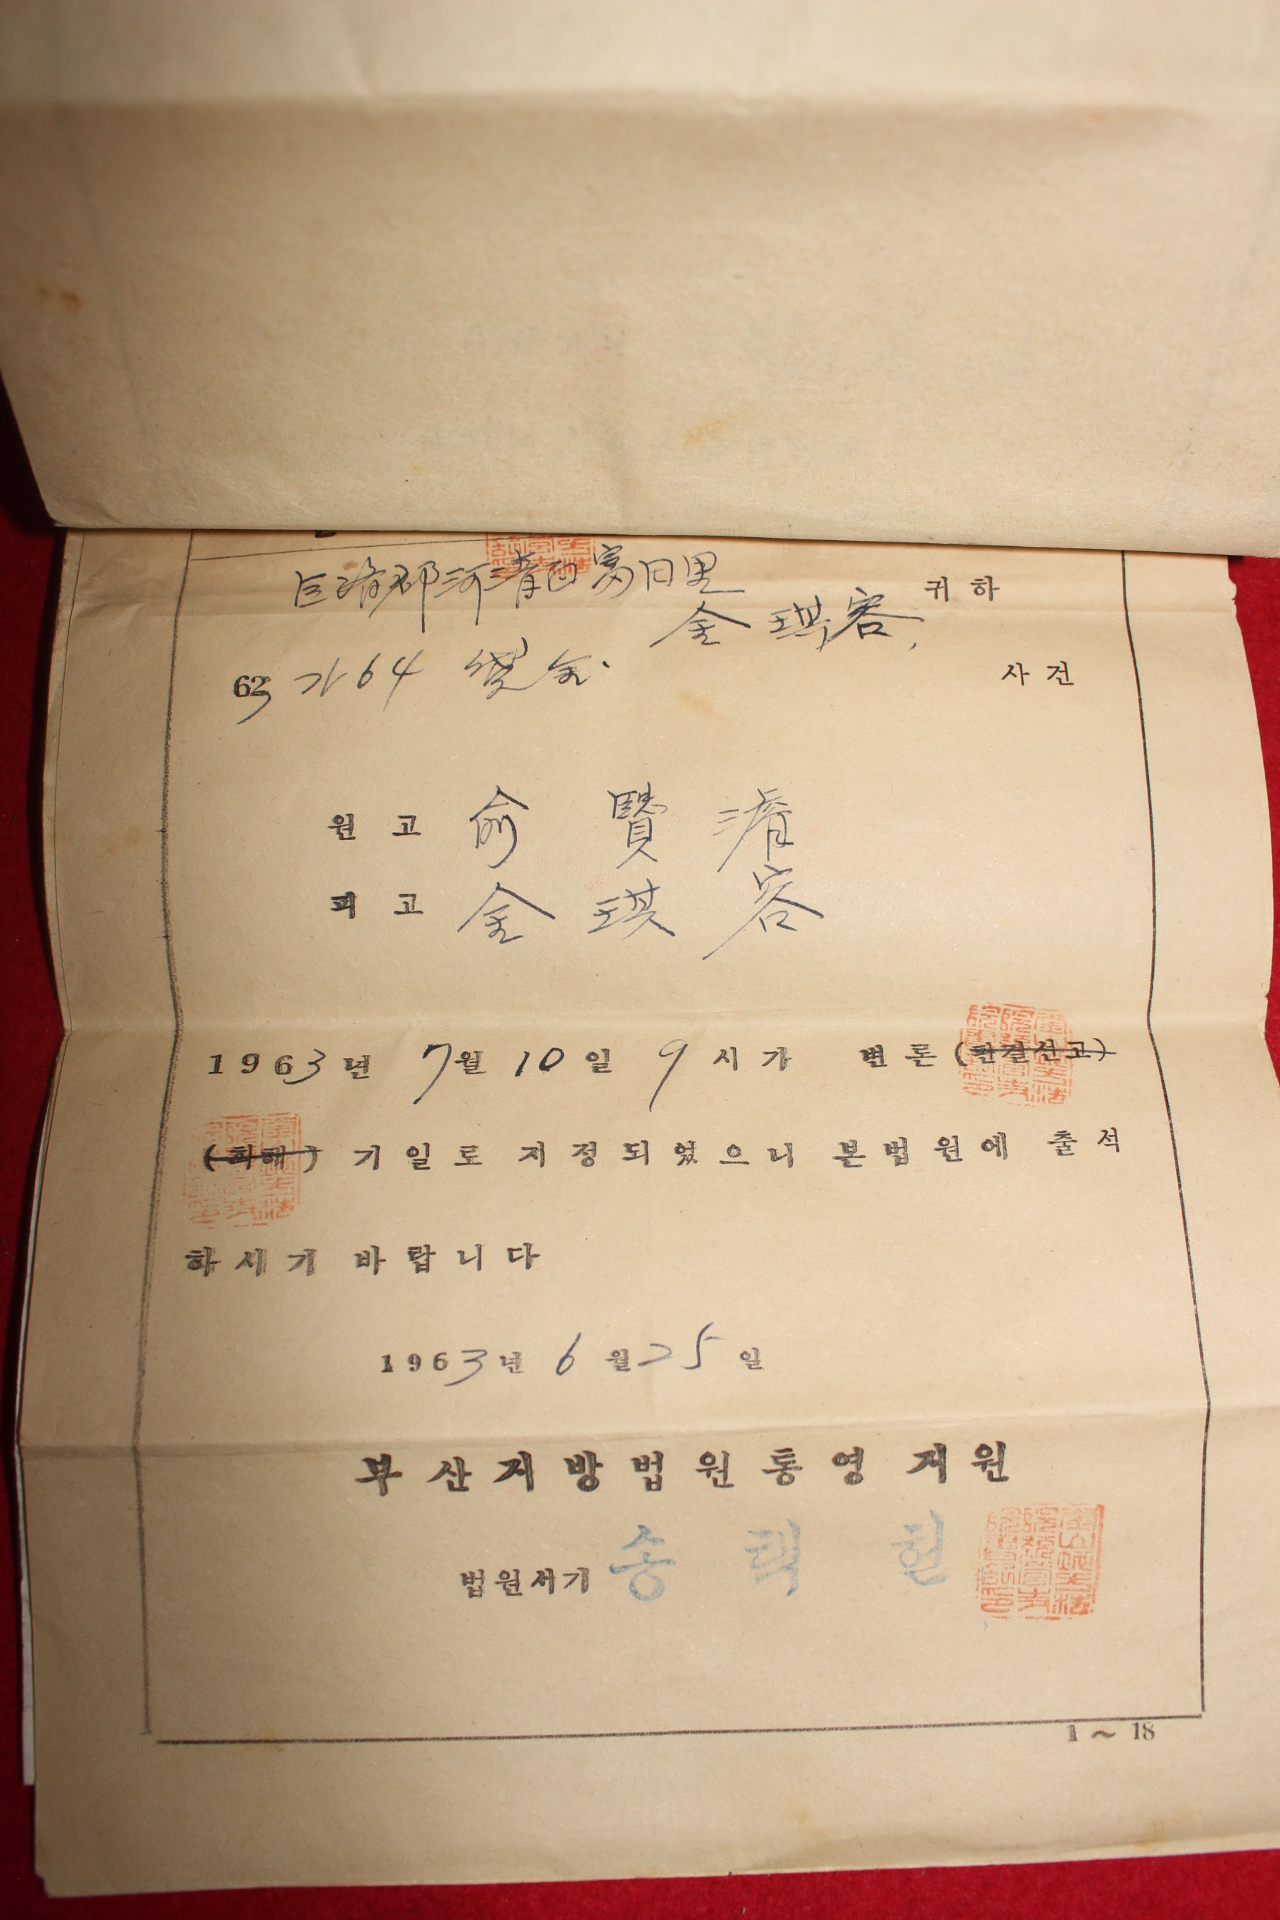 巨濟郡河淸面 里 귀하
金琪容
63 가 64 사건
원고 兪賢濬
피고 金琪容
1963년 7월 10일 9시가 변론 (판결선고)
(화해) 기일로 지정되었으니 본법원에 출석
하시기 바랍니다
1963년 6월 25일
부산지방법원통영지원
법원서기 송택현
1~18